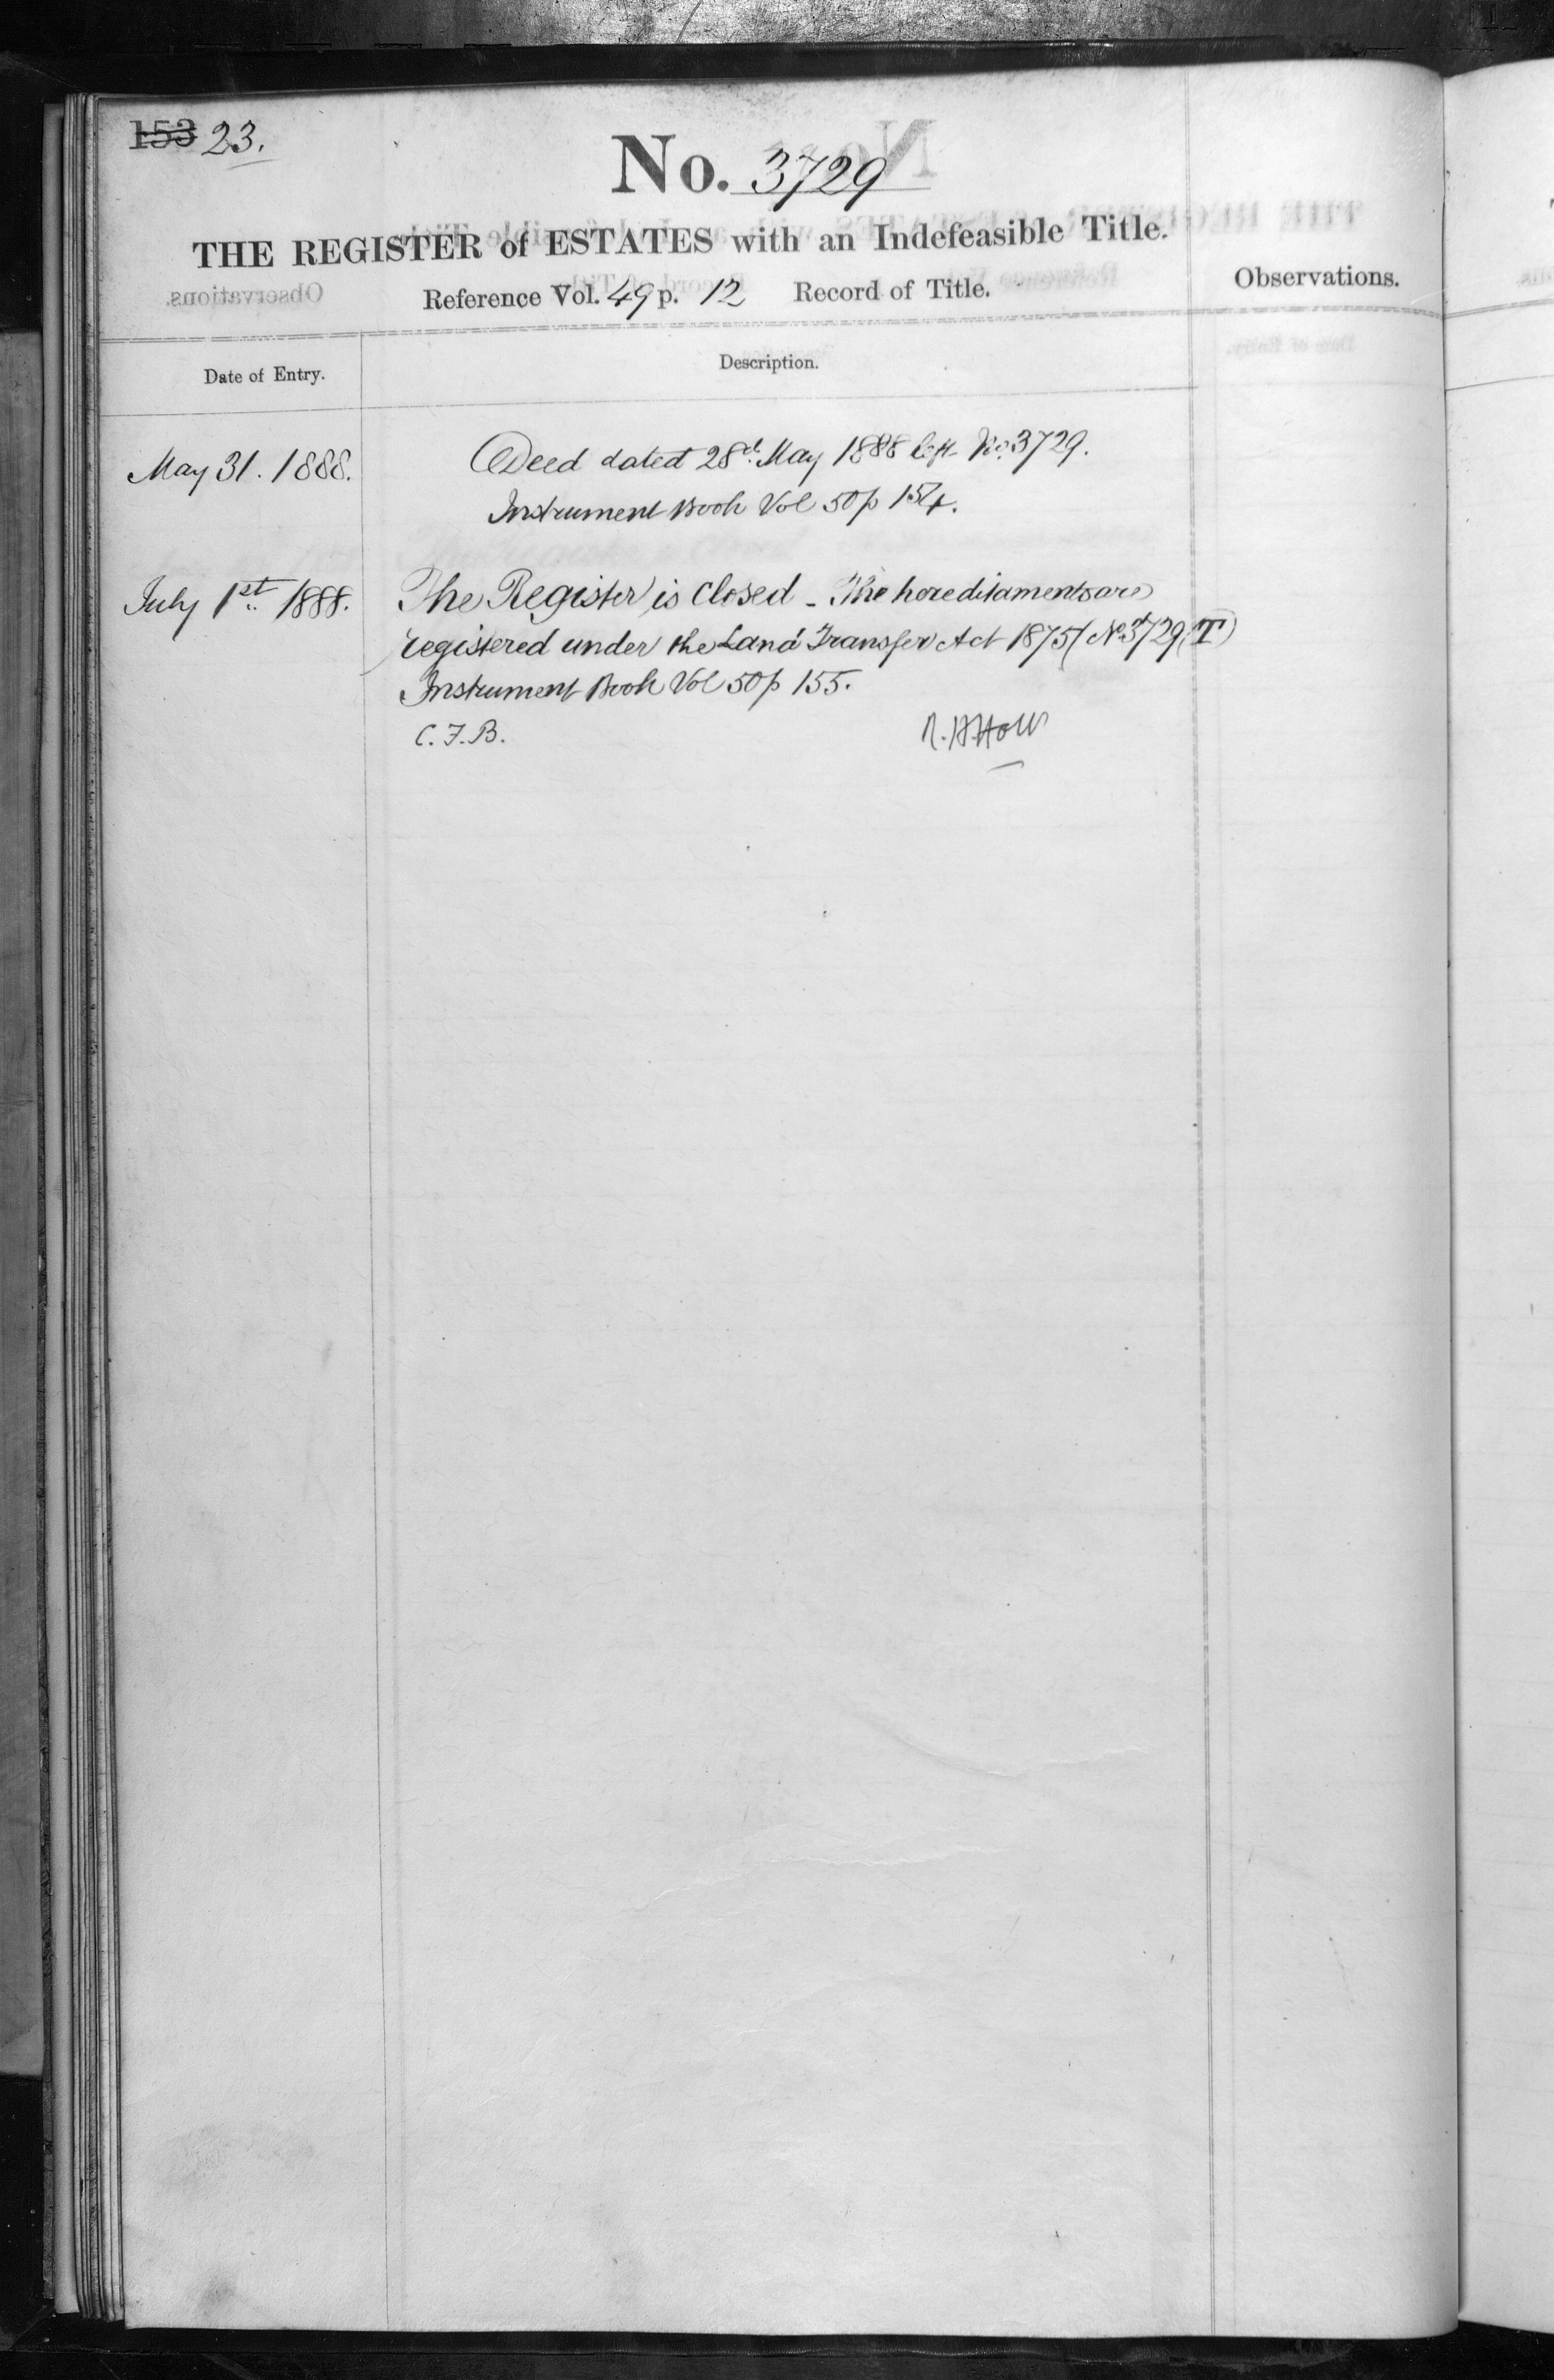 153 23.
No. 3729
THE REGISTER of ESTATES with an Indefeasible Title.
Reference Vol. 49 p. 12 Record of Title.
Observations.
Date of Entry.
Description.
May 31. 1888.
Deed dated 28th May 1888 left No. 3729.
Instrument Book Vol 50 p 154.
July 1st 1888.
The Register is closed - The hereditaments are
registered under the Land Transfer Act 1875 (No 3729 (T)
Instrument Book Vol 50 p 155.
C.F.B.